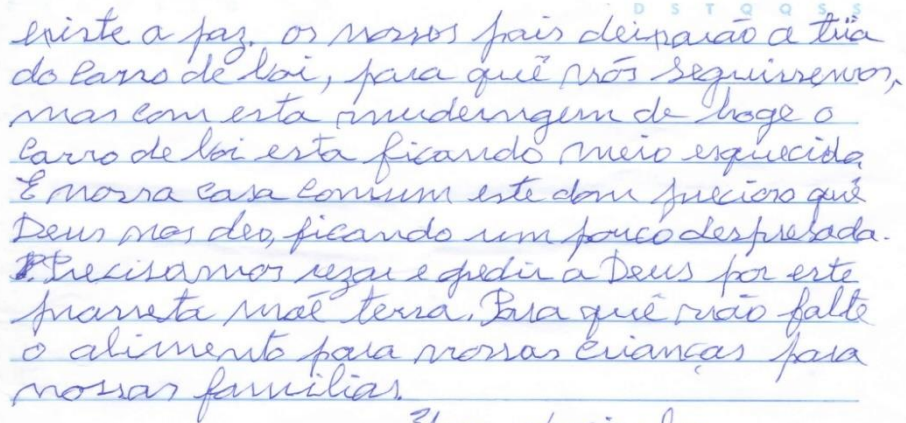 D S T Q Q S S
existe a paz. os nossos pais deixarão a trïa
do Carro de boi, para quê nós seguissemos,
mas com esta mudernigem de hoge o
Carro de boi esta ficando meio esquecido.
E nossa casa Comum este dom precioso quê
Deus nos deo, ficando um pouco despresada.
Precisamos rezar e pedir a Deus por este
praneta mãe terra. Para quê não falte
o alimento para nossas crianças para
nossas familias.